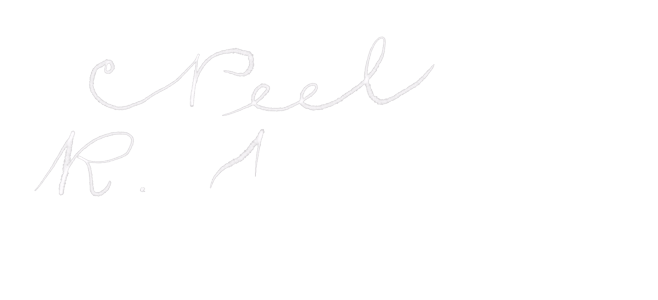 Peel
R. 1